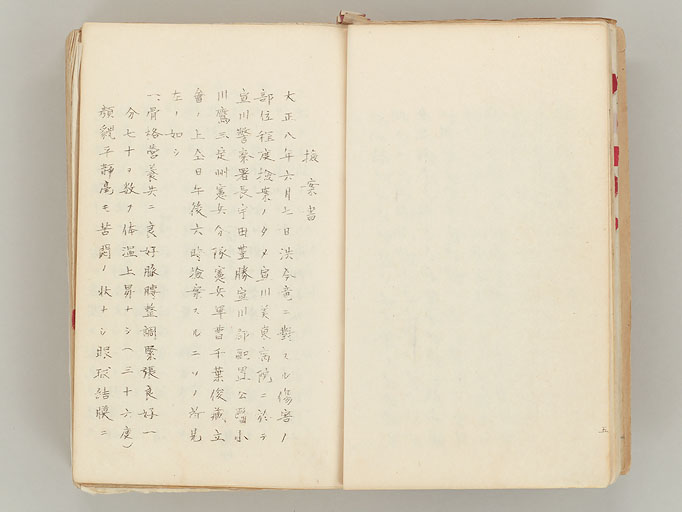 檢案書
大正八年六月七日洪今竜ニ對スル傷害ノ
部位程度檢案ノタメ宣川美東病院ニ於テ
宣川警察署長宇田豊勝宣川 公醫小
川鷹三定州憲兵分隊憲兵軍曹千葉俊藏立
會ノ上仝日午後六時檢案スルニソノ所見
左ノ如シ
一、骨格營養共ニ良好脉膊整調緊張良好一
分七十ヲ数ヲ体温上昇ナシ(三十六度)
顔貌平靜毫モ苦悶ノ狀ナシ眼球結膜ニ
五